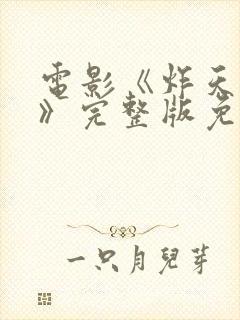 電影《炸天
》完整版免
一只月兒芽